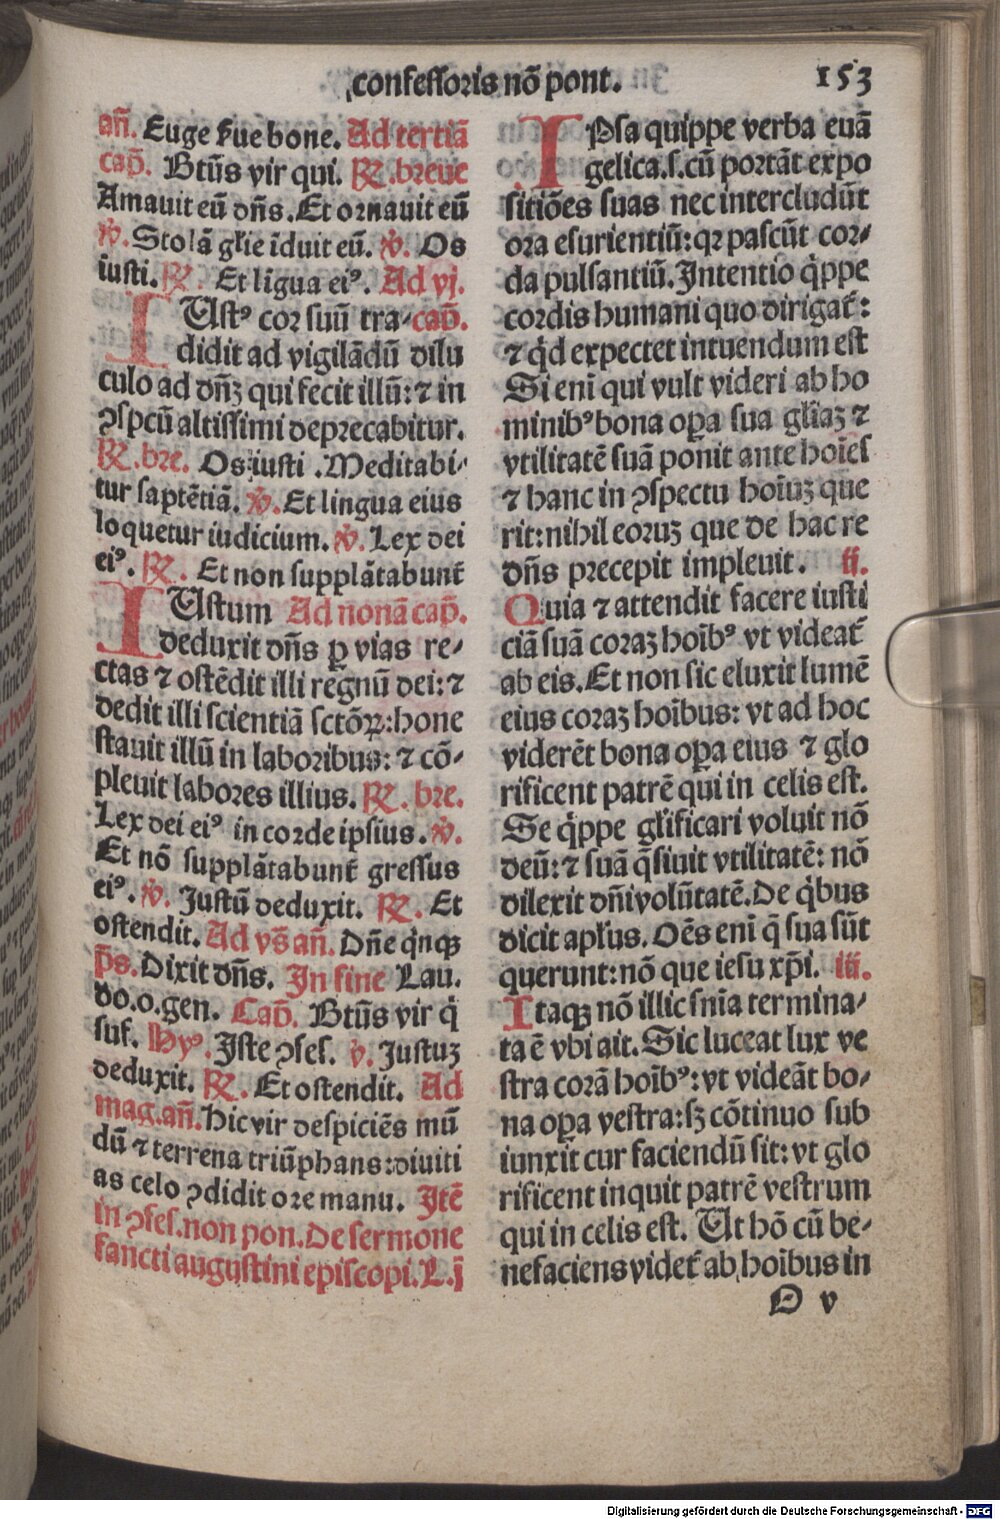 confessoris nō pont. 153
añ. Euge ẜue bone. Ad tertiā
cap̄. Btūs vir qui. ℞.breue
Amauit eū dñs.Et ornauit eū
℣.Stolā gl̄ie īduit eū. ℣. Os
iusti.℞. Et ligua eiꝰ. Ad vj.
IUstꝰ cor suū tra-cap̄.
didit ad vigilādū dilu
culo ad dñꝫ qui fecit illū: ⁊ in
ꝯspcū altissimi deprecabitur.
℞.bre. Os iusti .Meditabi-
tur sapiētiā. ℣.Et lingua eius
loquetur iudicium. ℣. Lex dei
eiꝰ.℞. Et non supplātabunt᷑
IUstum Ad nonā cap̄.
deduxit dñs ꝑ vias re-
ctas ⁊ ostēdit illi regnū dei: ⁊
dedit illi scientiā sctōꝝ: hone
stauit illū in laboribus: ⁊ cō-
pleuit labores illius. ℞. bre.
Lex dei eiꝰ in corde ipsius. ℣.
Et nō supplātabunt᷑ gressus
eiꝰ. ℣. Justū deduxit. ℞. Et
ostendit. Ad vs̄ añ. Dñe qnqꝫ
p̄s. Dixit dñs. In fine Lau.
do.o.gen. Cap̄. Btūs vir q̇
suf. Hyꝰ. Iste ꝯfes. ℣. Justuꝫ
deduxit. ℞. Et ostendit. Ad
mag.añ. Hic vir despiciēs mū
dū ⁊ terrena triūphans: diuiti
as celo ꝯdidit ore manu. Itē
in ꝯfes.non pon. De sermone
sancti augustini episcopi. L.j
IPsa quippe verba euā
gelica.s.cū portāt expo
sitiōes suas nec intercludūt
ora esurientiū: qꝛ pascūt cor-
da pulsantiū. Intentio q̇ppe
cordis humani quo dirigat᷑:
⁊ qd expectet intuendum est
Si enī qui vult videri ab ho
minibꝰ bona oꝑa sua gl̄iaꝫ ⁊
vtilitatē suā ponit ante hoīes
⁊ hanc in ꝯspectu hoīuꝫ que
rit: nihil eoruꝫ que de hac re
dñs precepit impleuit. ij.
Quia ⁊ attendit facere iusti
ciā suā coraꝫ hoībꝰ vt videat᷑
ab eis. Et non sic eluxit lumē
eius coraꝫ hoībus: vt ad hoc
viderēt bona oꝑa eius ⁊ glo
rificent patrē qui in celis est.
Se q̇ppe gl̄ificari voluit nō
deū: ⁊ suā q̄siuit vtilitatē: nō
dilexit dñi volūtatē. De q̇bus
dicit apl̄us. Oēs enī q̄ sua sūt
querunt: nō que iesu xp̄i. iij.
Itaqꝫ nō illic snīa termina-
ta ē vbi ait. Sic luceat lux ve
stra corā hoībꝰ: vt videāt bo-
na oꝑa vestra: sꝫ cōtinuo sub
iunxit cur faciendū sit: vt glo
rificent inquit patrē vestrum
qui in celis est. Ut hō cū be-
nefaciens videt᷑ ab hoībus in
O v
Digitalisierung gefördert durch die Deutsche Forschungsgemeinschaft - DFG